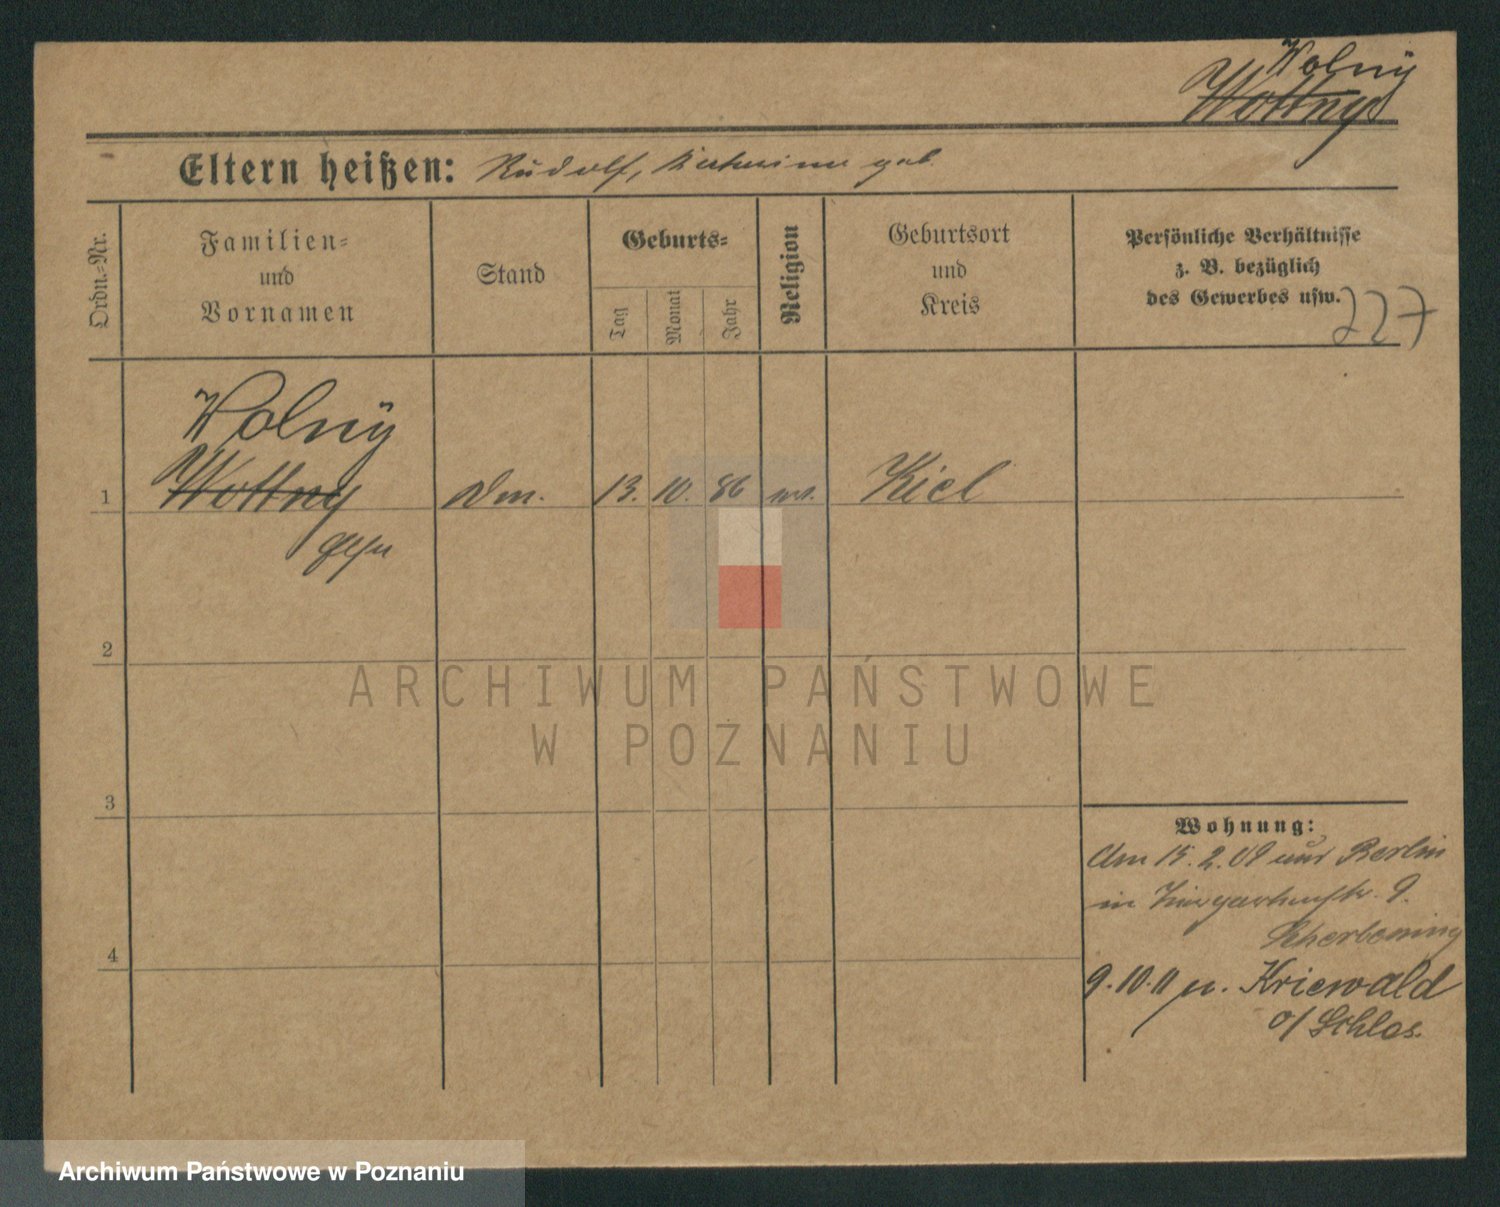 Wolny
Wottny
Eltern heißen: Rudolf, geb.
Ordn.-Nr.
Familien-
und
Vornamen
Stand
Geburts-
Tag
Monat
Jahr
Religion
Geburtsort
und
Kreis
Persönliche Verhältnisse
z. B. bezüglich
des Gewerbes usw.
227
Wolny
1 Wottny 13. 10. 86 Kiel
2
ARCHIWUM PAŃSTWOWE
W POZNANIU
3
Wohnung:
Am 15. 2. 09 Berlin
in 9.
4
9. 10. 11 n. Kriewald
o/ Schlos.
Archiwum Państwowe w Poznaniu